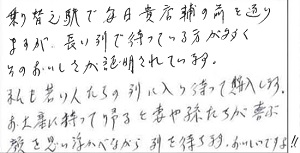 乗り替え駅で毎日貴店舗の前を通り
ますが、長い列で待っている方が多く
そのおいしさが証明されています。
私も若い人たちの列に入り待って購入します。
お土産に持って帰ると妻や孫たちが喜ぶ
顔を思い浮かべながら列を待ちます。おいしいですよ!!